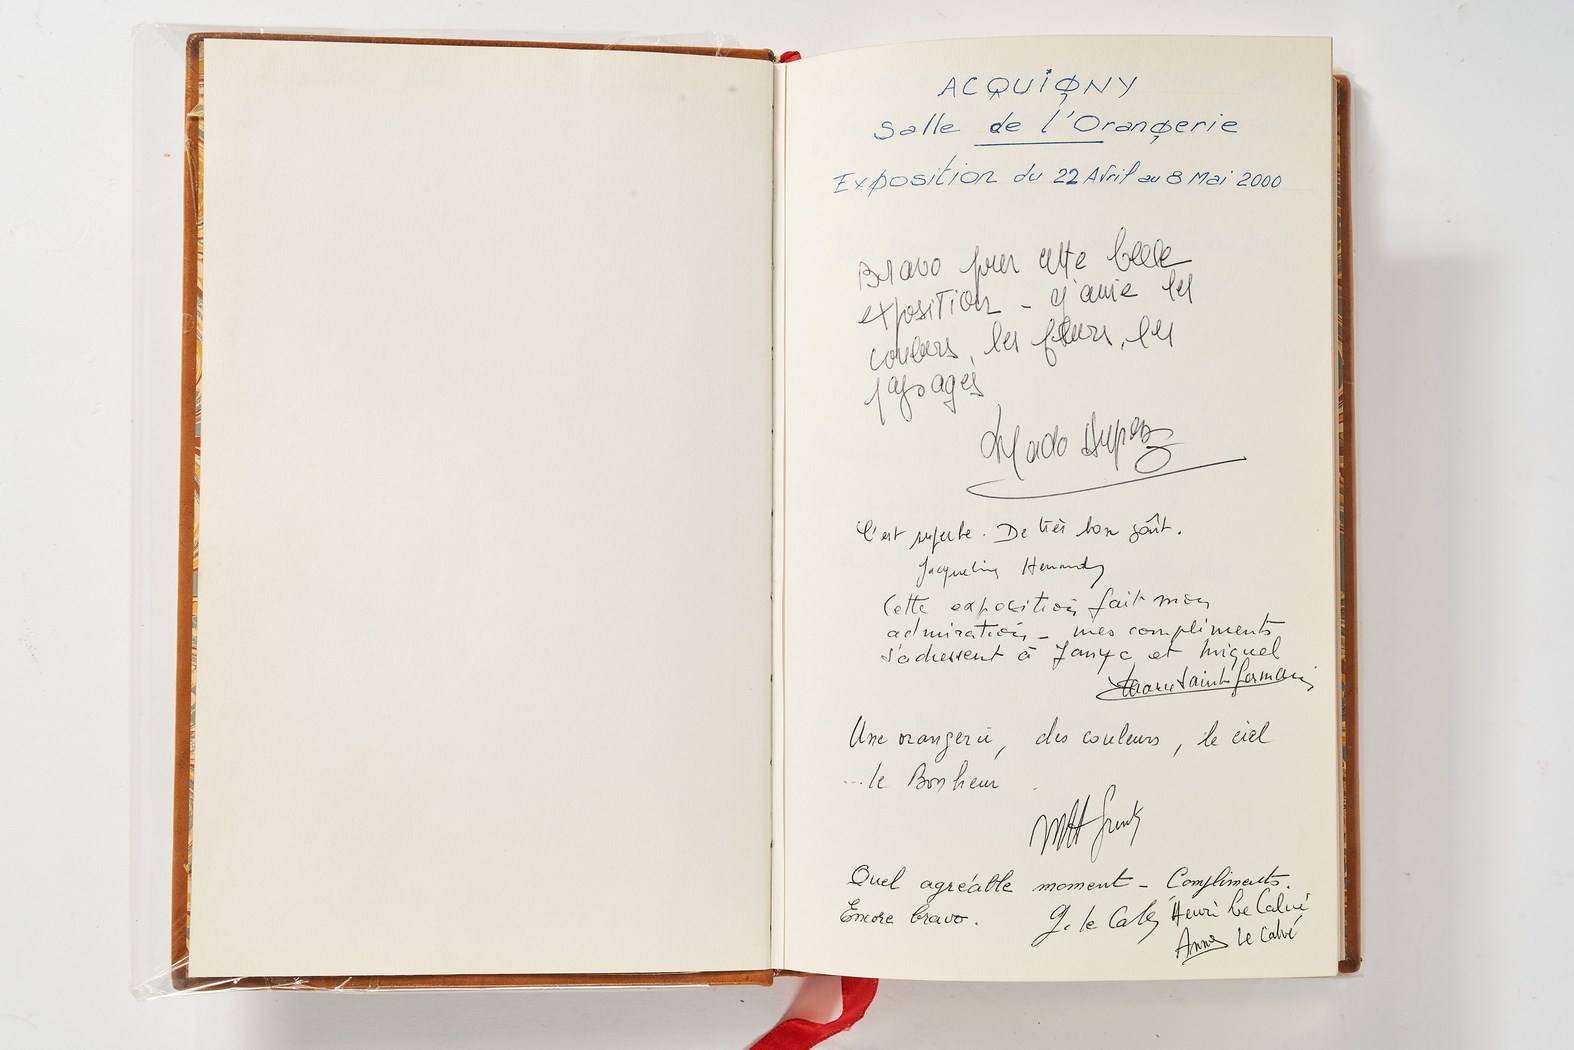 ACQUIGNY
Salle de l'Orangerie
Exposition du 22 Avril au 8 Mai 2000
Bravo pour cette belle
exposition - j'aime les
couleurs, les fleurs, les
paysages
Mado
C'est superbe. De très bon goût.
Jacqueline
Cette exposition fait mon
admiration - mes compliments
s'adressent à et Miguel
Saint Germain
Une orangerie, des couleurs, le ciel
...le Bonheur
Quel agréable moment - Compliments.
Encore bravo. Henri Le Calvé
Anne Le Calvé